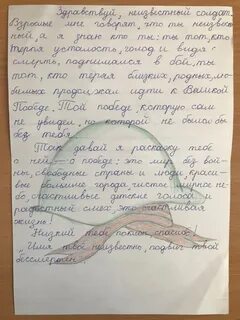 Здравствуй, неизвестный солдат.
Взрослые мне говорят, что ты неизвест-
ный, а я знаю кто ты: ты тот, кто
терпя усталость, голод и видя
смерть, поднимался в бой, ты
тот, кто теряя близких, родных, лю-
бимых продолжал идти к Великой
Победе. Той победе, которую сам
не увидел, но которой не было бы
без тебя.
Так давай я расскажу тебе
о ней - о победе: это мир без вой-
ны, свободные страны и люди, краси-
вые большие города, чистое мирное не-
бо, счастливые детские голоса и
радостный смех, это счастливая
жизнь!
Низкий тебе поклон, спасибо.
Имя твоё неизвестно, подвиг твой
бессмертен.